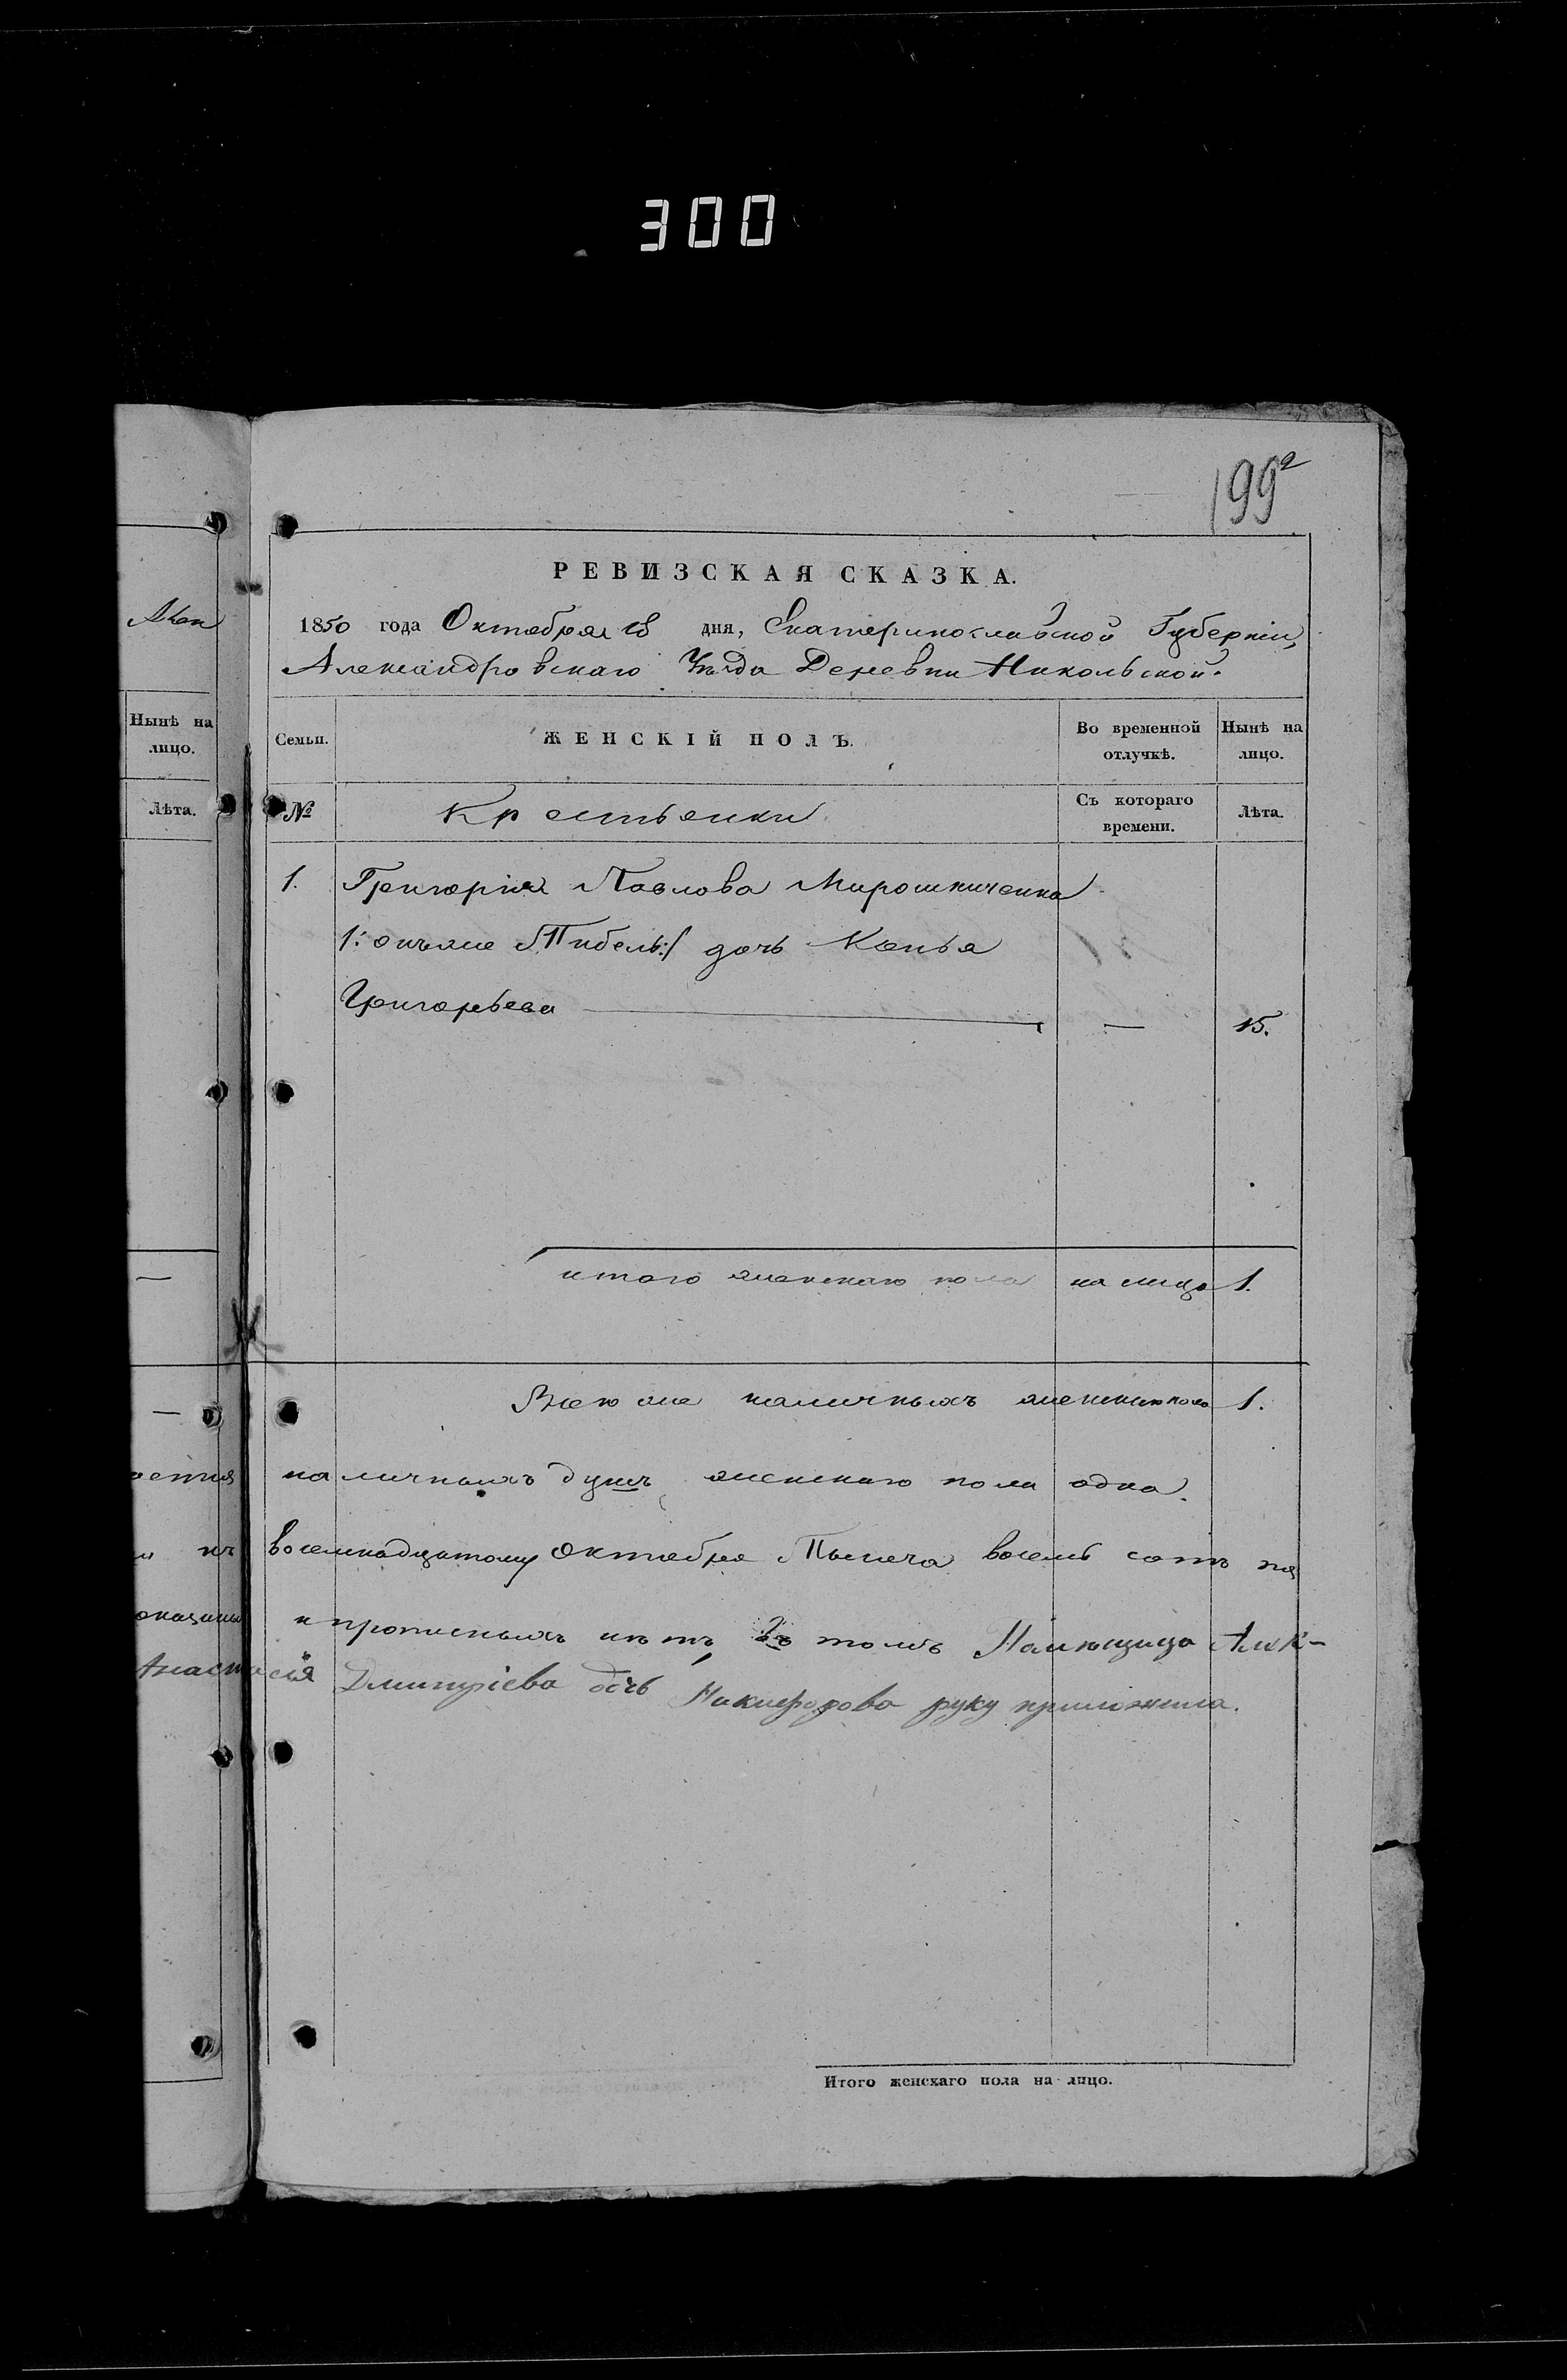 300
199а
Ален
РЕВИЗСКАЯ СКАЗКА.
1850 года Октября 18 дня, Екатеринославской Губерніи,
Александровскаго Уѣзда Деревни Никольской.
Нынѣ на лицо.
Лѣта.
Семьи.
ЖЕНСКІЙ ПОЛЪ.
Во временной отлучкѣ.
Нынѣ на лицо.
№
Крестьянки
Съ котораго времени.
Лѣта.
1. Григорія Павлова Мирошниченка
/: онъже Пибель :/ дочь Ксенья
Григорьева — — 15.
итого женскаго пола на лицо 1.
Всего же наличныхъ женскаго пола 1.
наличныхъ душъ женскаго пола одна.
къ восемнадцатому Октября Тысяча восемь сотъ пя
и прописныхъ нѣтъ въ томъ Помѣщица
Анастасія Дмитріева дочь Никифорова руку приложила.
Итого женскаго пола на лицо.